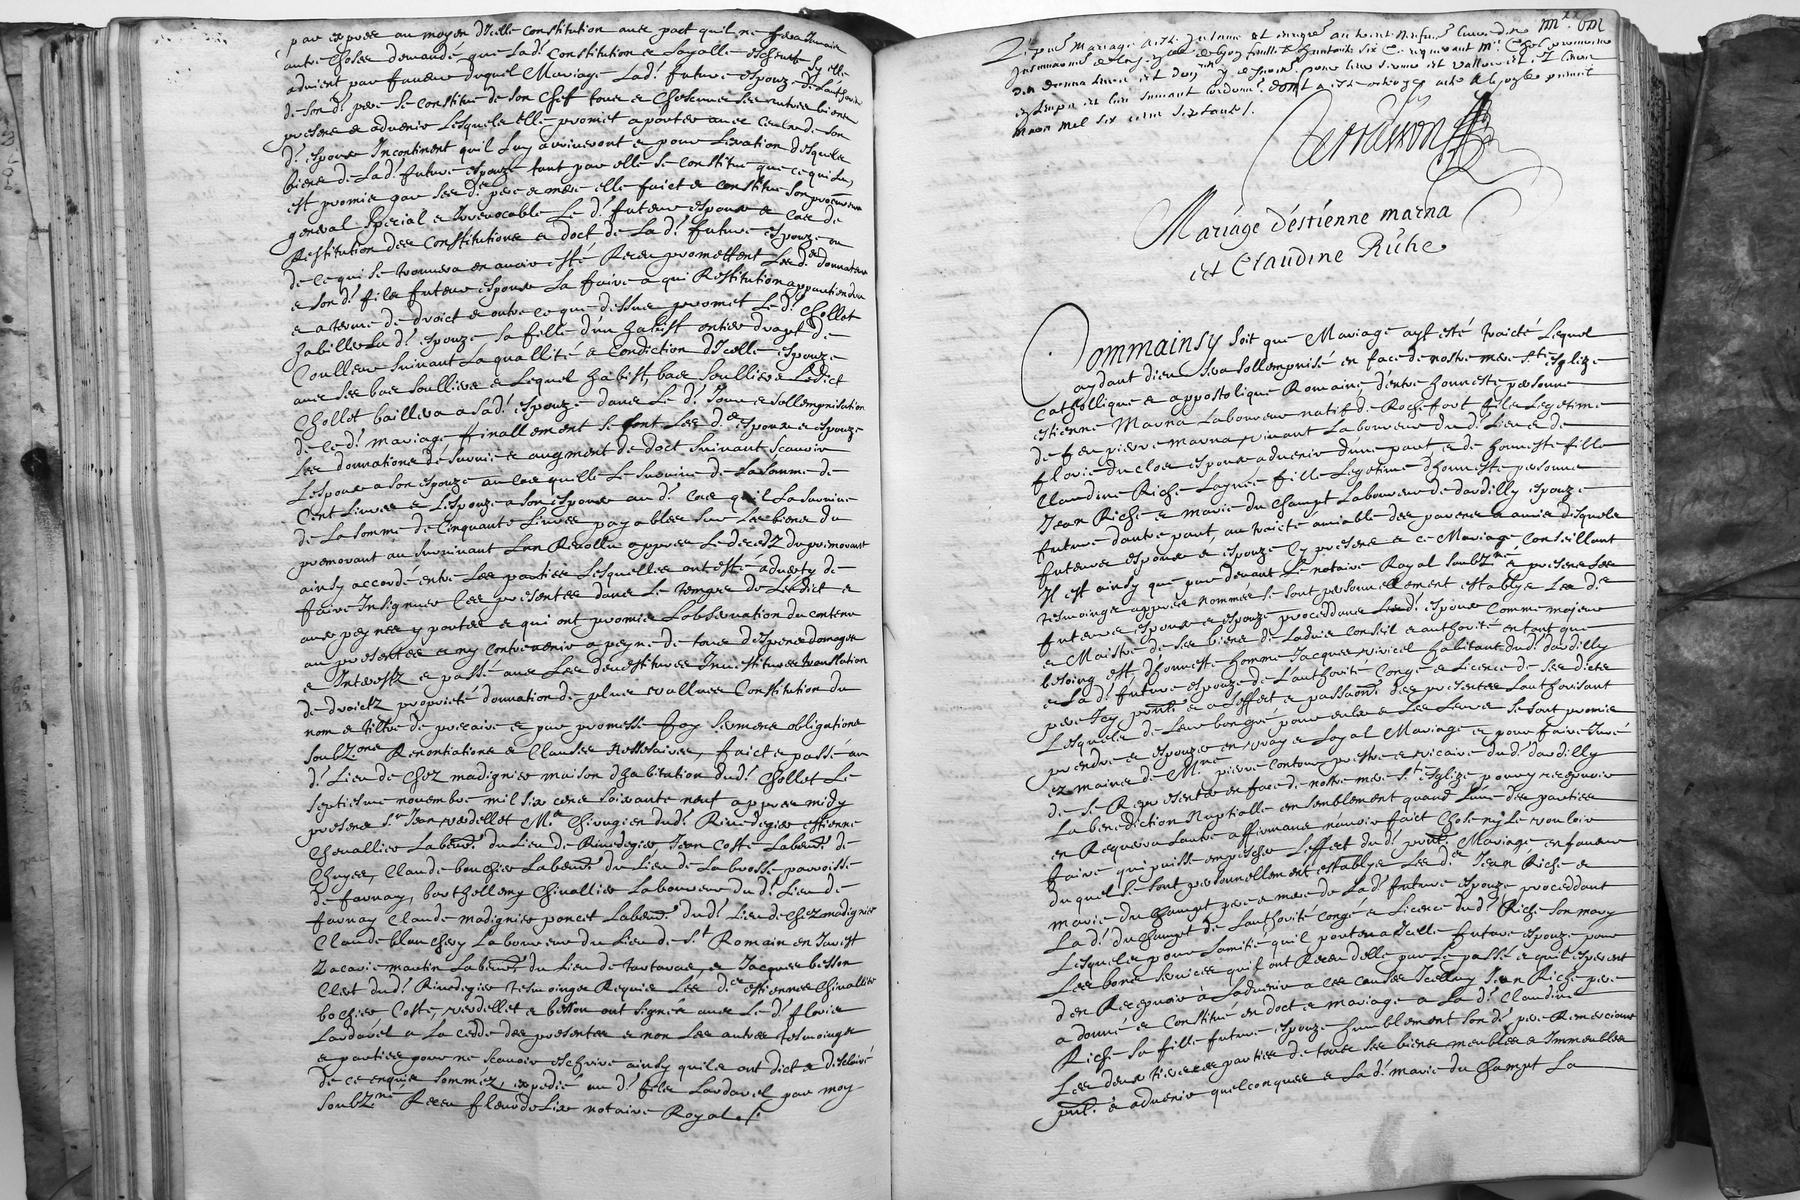 par exprez au moyen d'Icelle Constitution avec pact qu'il ne sera Jamais
autre Chose demandé, que lad.t Constitution & loyalle eschente sy elle
advient par faveur duquel Mariage Lad.t future espouze de l'authorité
de son d.t pere se constitue de son Chef tous & Chescuns ses autres biens
presens & advenir lesquels elle promet apporter avec Ceulx de son
d.t espoux Incontinent qu'il luy arriveront & pour l'exation desquels
biens de Lad.t future espouze tant par elle se constitue que ce qui luy
est promis par ses d.t pere & mere elle faict & constitue son procureur
general special & Irrevocable Le d.t futeur espoux & cas de
Restitution des Constitutions & doct de La d.t future espouze ou
de ce qui se trouvera en avoir esté Receu promettent Les d.t donnateurs
& son d.t fils futeur espoux La faire a qui Restitution appartiendra
& a terme de droict & outre ce que dessus promet Le d.t Chollet
habiller La d.t espouze sa fille d'un habist entier drapt de
Coulleur suivant La quallité & Condiction d'Icelle espouze
avec ses bas soulliers & Lequel habist, bas soulliers Ledict
Chollet baillera a sad.t espouze dans Le d.t Jour & sollempnisation
de ced.t mariage finallement se font Les d.t espoux & espouze
Les donnations de survie & augment de doct suivant scavoir
L'espoux a son espouze au cas quelle Le survive de La somme de
Cent Livres & L'espouze a son espoux au d.t Cas qu'il La survive
de La somme de Cinquante Livres payables sur Les biens du
premorant au survivant L'an Revollu appres Le decedz du premorant
ainsy accordé entre Les parties Lesquelles ont esté adverty de
faire Insignuer Ces presentes dans Le temps de Ledict &
aux peynes y portees & qui ont promis L'observation du contenu
au presentes & ny contrevenir a peyne de tous despens domages
& Interestz & passé avec Les devestitures Investitures translation
de droictz proprieté donnation de plus vallues Constitution du
nom & tiltre de precaire & par promesse foy sermens obligations
soubz.ons Renontiations & Clauses Nessesaires, faict & passé au
d.t Lieu de Chez madignier maison d'habitation dud.t Chollet Le
septiesme novembre mil six cens soixante neuf appres midy
presens s.r Jean verdellet M.e Chirugien dud.t Rivedegier estienne
Chevallier Labeur.r du Lieu de Rivedegier Jean Coste Labeur.r de
Chuyes, Claude bouchier Labeur.r du Lieu de La brosse parroisse
de farnay, barthellemy Chivallier Laboureur du d.t Lieu de
farnay Claude madignier poncet Labeur.r dud.t Lieu de Chez madignier
Claude blanchery Laboureur du Lieu de S.t Romain en Jarest
Zacarie martin Labeur.r du Lieu de tartaras, & Jacques besson
Clerc dud.t Rivedegier tesmoings Requis Les d.t estiennes Chivallier
bochier Coste, verdellet & besson ont signés avec Le d.t flovis
Lardavel a La cedde des presentes & non Les autres tesmoings
& parties pour ne scavoir eschrire ainsy quils ont dict & Desclairé
de ce enquis sommez, expedié au d.t fils Lardavel par moy
soubz.né Receu fleurdelix notaire Royal./.
mariage a esté
mars mil six cens septante/.
Terrasson
Mariage d'éstienne marna
et Claudine Riche
Commainsy soit que Mariage ayt esté traicté Lequel
aydant dieu sera sollempnisé en face de nostre mere s.te esglize
Catholique & appostolique Romaine d'entre honneste personne
estienne Marna Laboureur natif de Rochefort fils Legetime
de feu pierre marna vivant Laboureur dud.t Lieu & de
florie du clos espoux advenir d'une part & de honneste fille
Claudine Riche Laynée fille Legetime d'honneste personne
Jean Riche & marie du Champt Laboureur de dardilly espouze
future dautre part, au traicté amiable des parens & amis desquels
futeurs espoux & espouze Cy presens & ce Mariage Conseillant
Il est ainsy que par devant Le notaire Royal soubz.né & presens Les
tesmoings appres nommés se sont personnellement establys Les d.t
futeurs espoux & espouze proceddans Led.t espoux Comme majeur
& Maistre de ses biens de Ladvis Conseil & authorité en tant que
besoing est, d'honneste homme Jacques vivicel habitant dud.t dardilly
& La d.t future espouze de L'authorité Congé & Licence de ses dictz
pere Icy pnt. & a Leffect & passaon. des presentes Lauthorisant
Lesquels de Leur bon gré pour eulx & Les Leurs se sont promis
prendre & espouzer en vray & Loyal Mariage & pour faire Juré
ez mains de M.re pierre contour prestre & vicaire dud.t dardilly
de se Representer en face de nostre mere s.te esglize pour y recepvoir
La benediction Nuptialle ensemblement quand L'une des parties
en Requerra Lautre affirmans n'avoir faict Chose ny Le vouloir
faire qui puisse empescher L'effect du d.t pnt. Mariage en faveur
duquel se sont personnellement establys Les d.t Jean Riche &
marie du Champt pere & mere de La d.t future espouze proceddant
La d.t du Champt de Lauthorité congé & Licence dud.t Riche son mary
Lesquels pour Lamitié qu'il portent a Icelle future espouze pour
Les bons services qu'il ont Receu delle par Le passé & qu'il esperent
d'en Recepvoir à Ladvenir a ces causes Icelluy Jean Riche pere
a donné & Constitue en doct & mariage a La d.t Claudine
Riche sa fille future espouze humblement son d.t pere Remerciant
Les deux tierces parties de tous ses biens meubles & Immeubles
pnt. & advenir quelconques & La d.t marie du Champt La